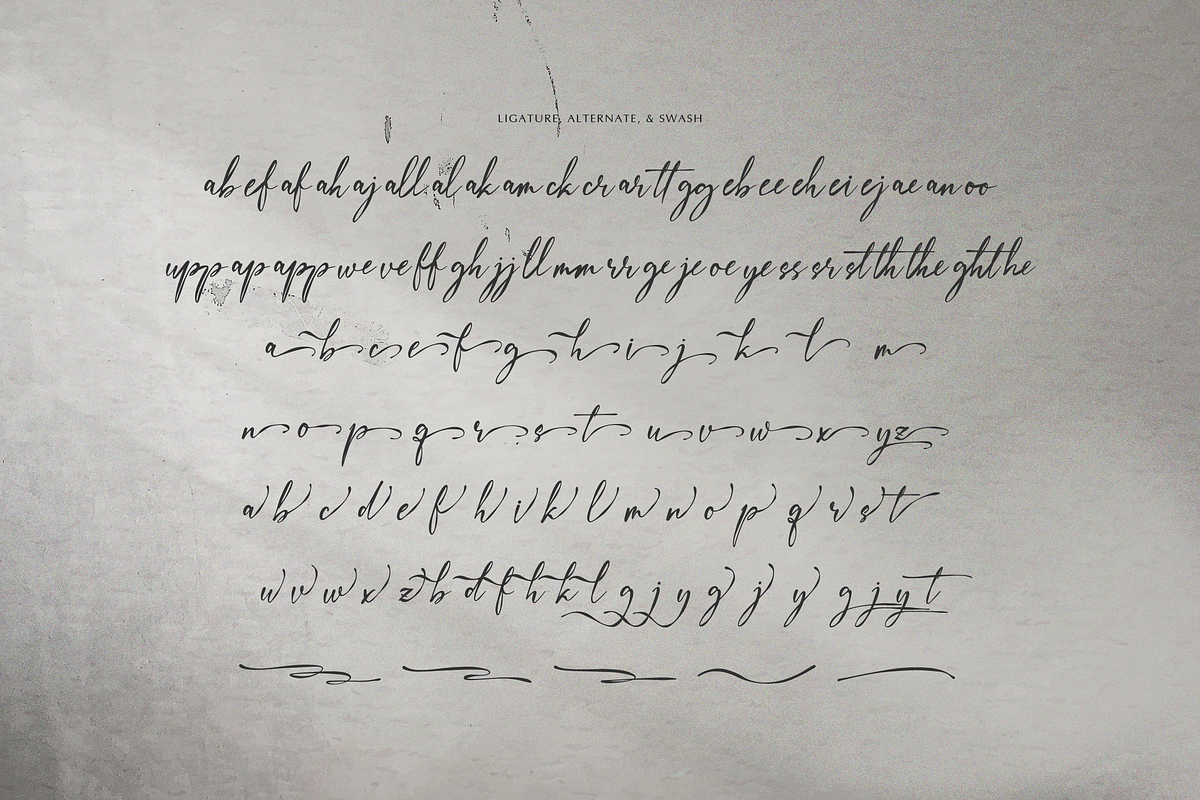 LIGATURE, ALTERNATE, & SWASH
ab ef af ah aj all al ak am ck cr ar tt gg eb ee eh ei ej ae an oo
upp ap app we ve ff gh jj ll mm rr ge je oe ye ss sr st th the ght he
a b c e f g h i j k l m
n o p q r s t u v w x y z
a b c d e f h i k l m n o p q r s t
u v w x z b d f h k l g j y g j y g j y t